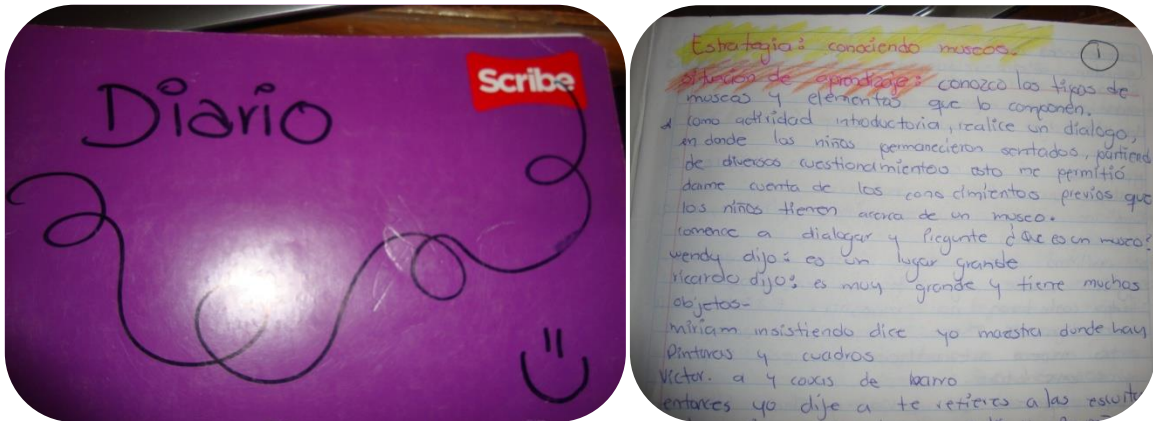 Diario
Scribe
1
Estrategia: conociendo museos.
situación de aprendizaje: conozco los tipos de
museos y elementos que lo componen.
como actividad introductoria, realice un dialogo,
en donde los niños permanecieron sentados, partiend
de diversos cuestionamientos esto me permitió
darme cuenta de los conocimientos previos que
los niños tienen acerca de un museo.
comence a dialogar y Pregunte ¿Que es un museo?
wendy dijo: es un lugar grande
ricardo dijo: es muy grande y tiene muchos
objetos-
miriam insistiendo dice yo maestra donde hay
Pinturas y cuadros
victor. a y cosas de barro
entonces yo dije a te refieres a las escult